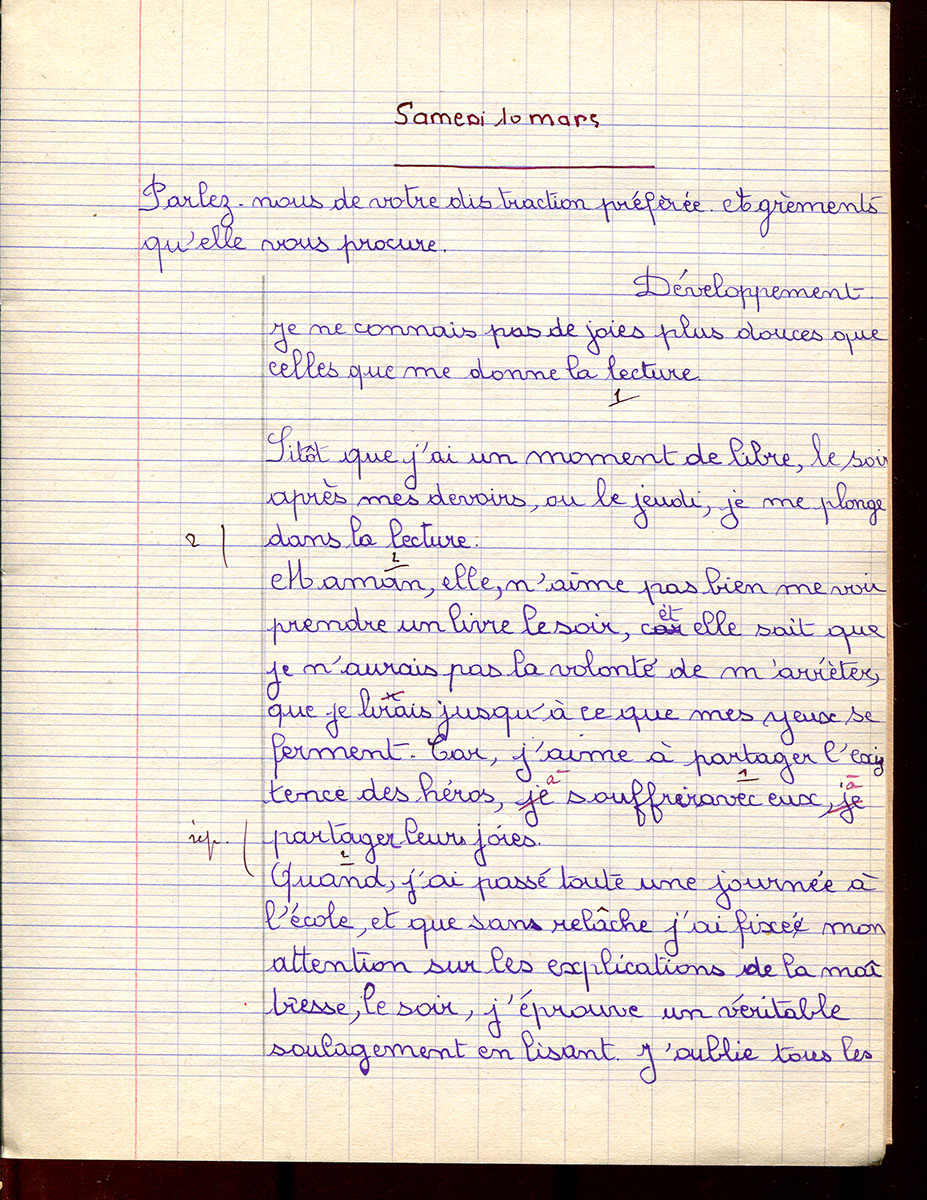 Samedi 10 mars
Parlez-nous de votre distraction préférée. et agrèments
qu'elle vous procure.
Développement.
Je ne connais pas de joies plus douces que
celles que me donne la lecture.
1
Sitôt que j'ai un moment de libre, le soir
après mes devoirs, ou le jeudi, je me plonge
2 dans la lecture.
2
Maman, elle, n'aime pas bien me voir
et
prendre un livre le soir, car elle sait que
je n'aurais pas la volonté de m'arrêter,
que je lirais jusqu'à ce que mes yeux se
ferment. Car, j'aime à partager l'exis
à 1 à
tence des héros, je souffrir avec eux, je
rép. partager leurs joies.
2
Quand, j'ai passé toute une journée à
l'école, et que sans relâche j'ai fixée mon
attention sur les explications de la maî
tresse, le soir, j'éprouve un véritable
soulagement en lisant. J'oublie tous les